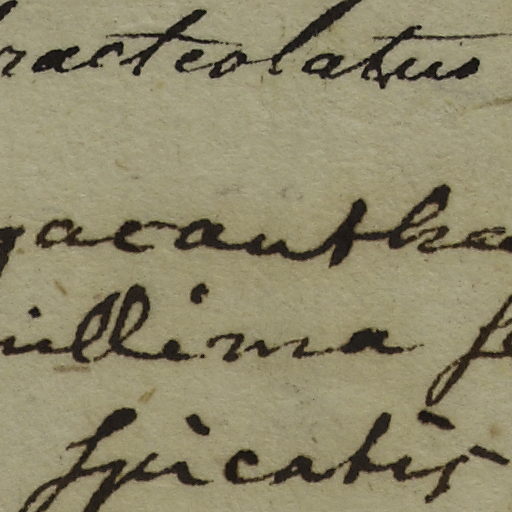 racteolatus
gacantha
illima
spicatis